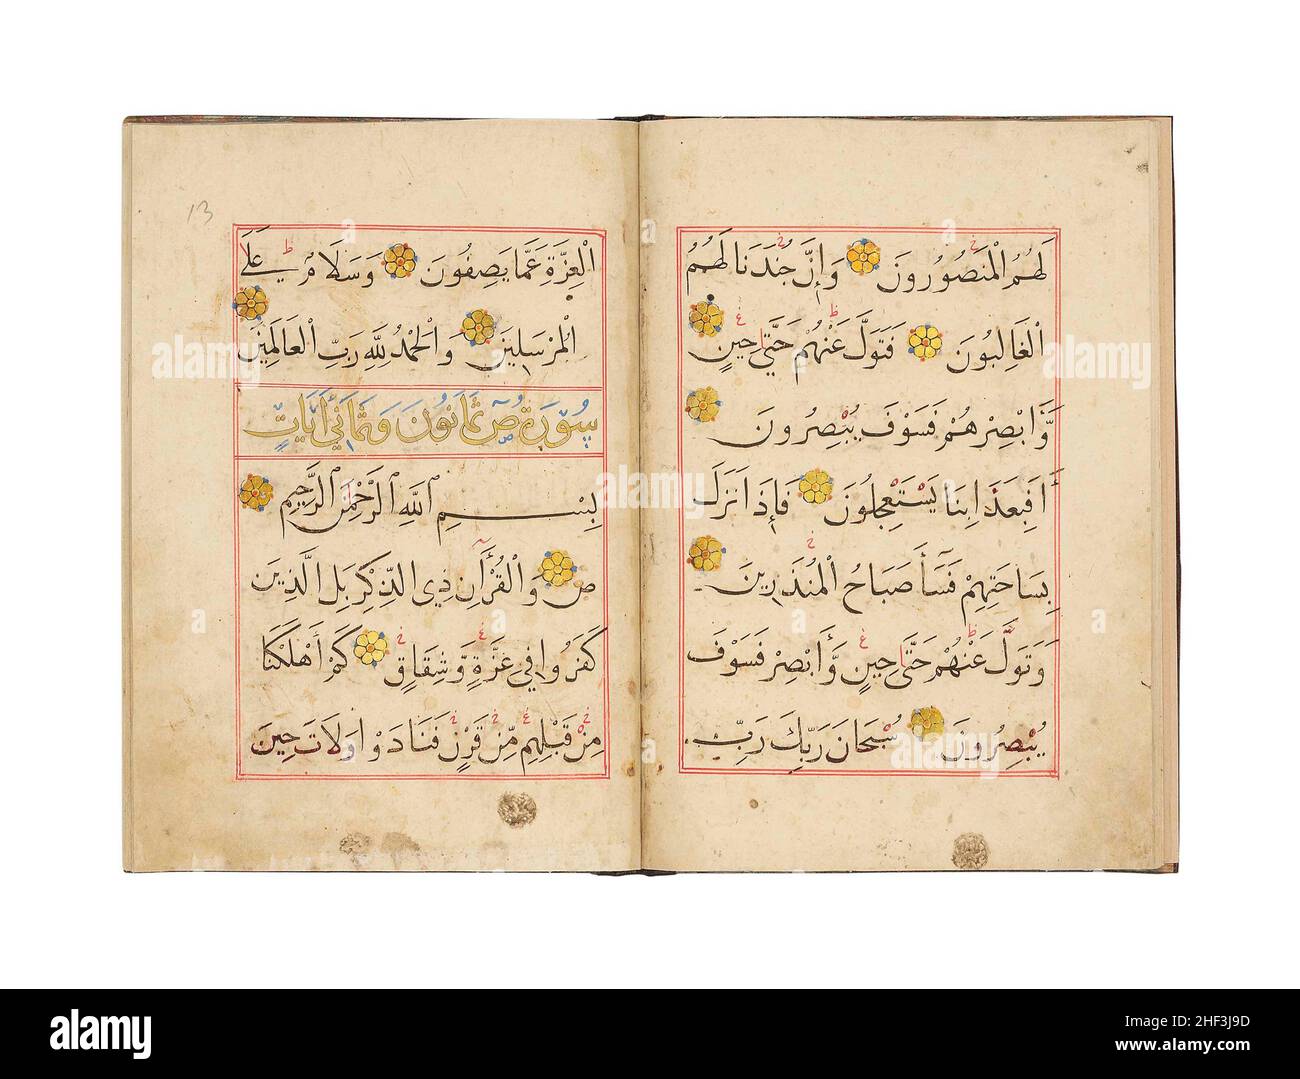 لَهُمُ الْمَنْصُورُونَ وَإِنَّ جُنْدَنَا لَهُمُ
الْغَالِبُونَ فَتَوَلَّ عَنْهُمْ حَتَّىٰ حِينٍ
وَّأَبْصِرْهُمْ فَسَوْفَ يُبْصِرُونَ
أَفَبِعَذَابِنَا يَسْتَعْجِلُونَ فَإِذَا نَزَلَ
بِسَاحَتِهِمْ فَسَآءَ صَبَاحُ الْمُنْذَرِينَ
وَتَوَلَّ عَنْهُمْ حَتَّىٰ حِينٍ وَّأَبْصِرْ فَسَوْفَ
يُبْصِرُونَ سُبْحَانَ رَبِّكَ رَبِّ
13
الْعِزَّةِ عَمَّا يَصِفُونَ وَسَلَامٌ عَلَى
الْمُرْسَلِينَ وَالْحَمْدُ لِلَّهِ رَبِّ الْعَالَمِينَ
سُورَةُ ص ثَمَانُونَ وَثَمَانِي آيَاتٍ
بِسْمِ اللَّهِ الرَّحْمَنِ الرَّحِيمِ
ص وَالْقُرْآنِ ذِي الذِّكْرِ بَلِ الَّذِينَ
كَفَرُوا فِي عِزَّةٍ وَّشِقَاقٍ كَمْ أَهْلَكْنَا
مِنْ قَبْلِهِمْ مِّنْ قَرْنٍ فَنَادَوْا وَلَاتَ حِينَ
alamy
Image ID: 2HF3J9D
www.alamy.com